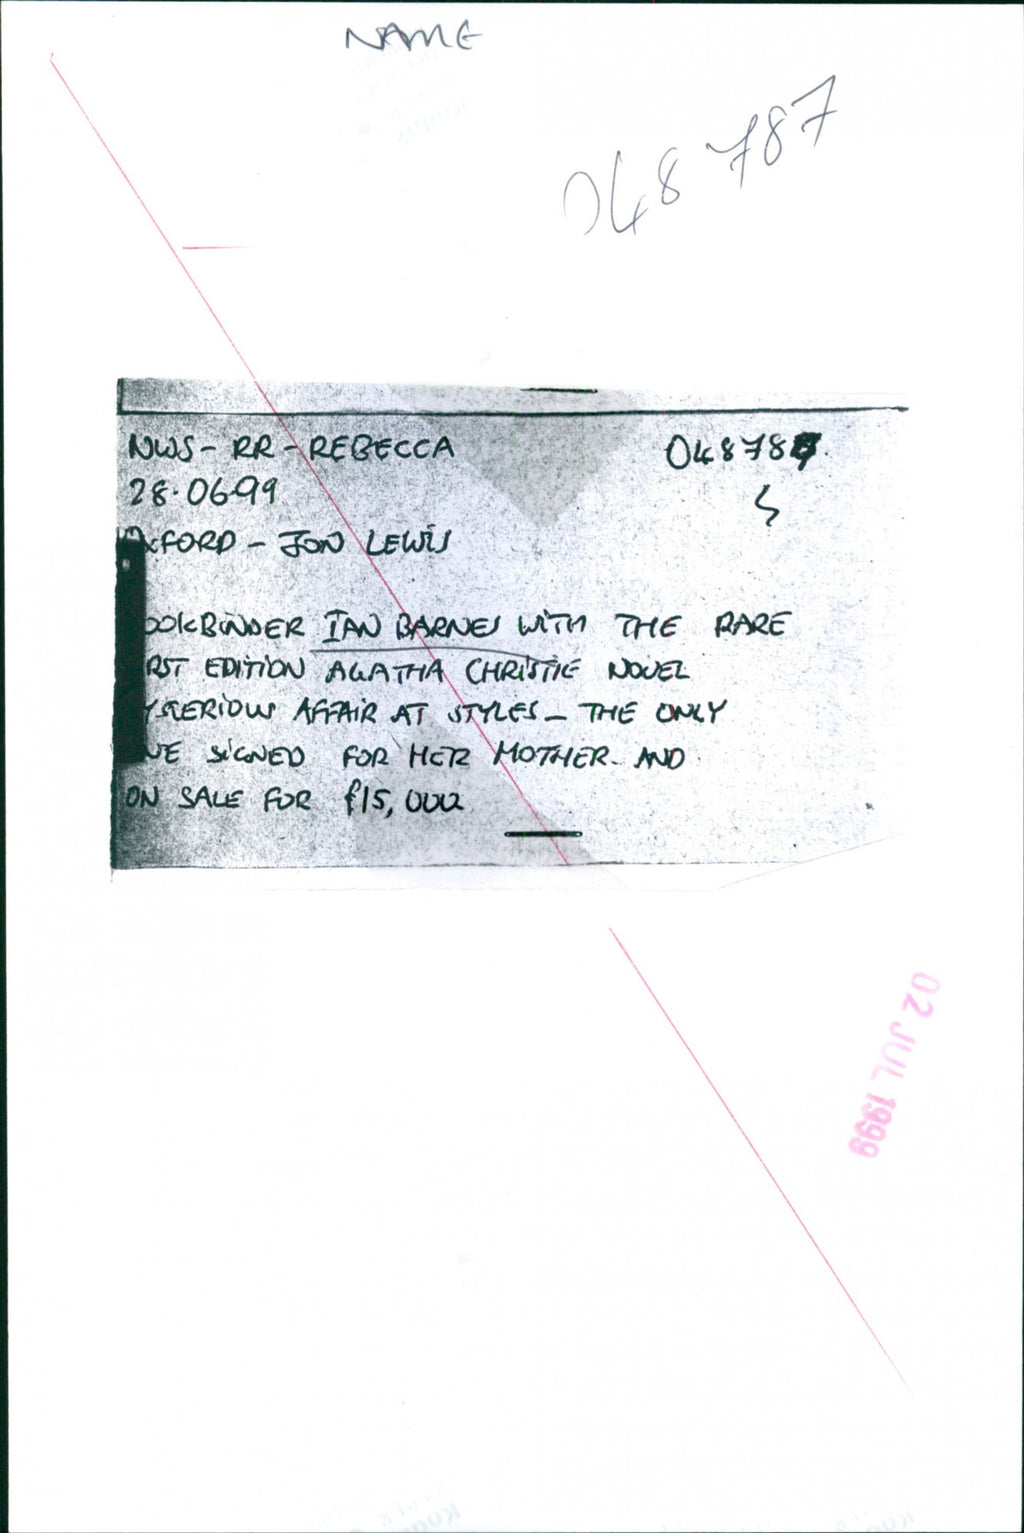 NAME
048787
NWS - RR - REBECCA 04878
28.06.99
OXFORD - JON LEWIS
OOKBINDER IAN BARNES WITH THE RARE
RST EDITION AGATHA CHRISTIE NOVEL
YSTERIOUS AFFAIR AT STYLES - THE ONLY
NE SIGNED FOR HER MOTHER AND
ON SALE FOR £15,000
02 JUL 1999